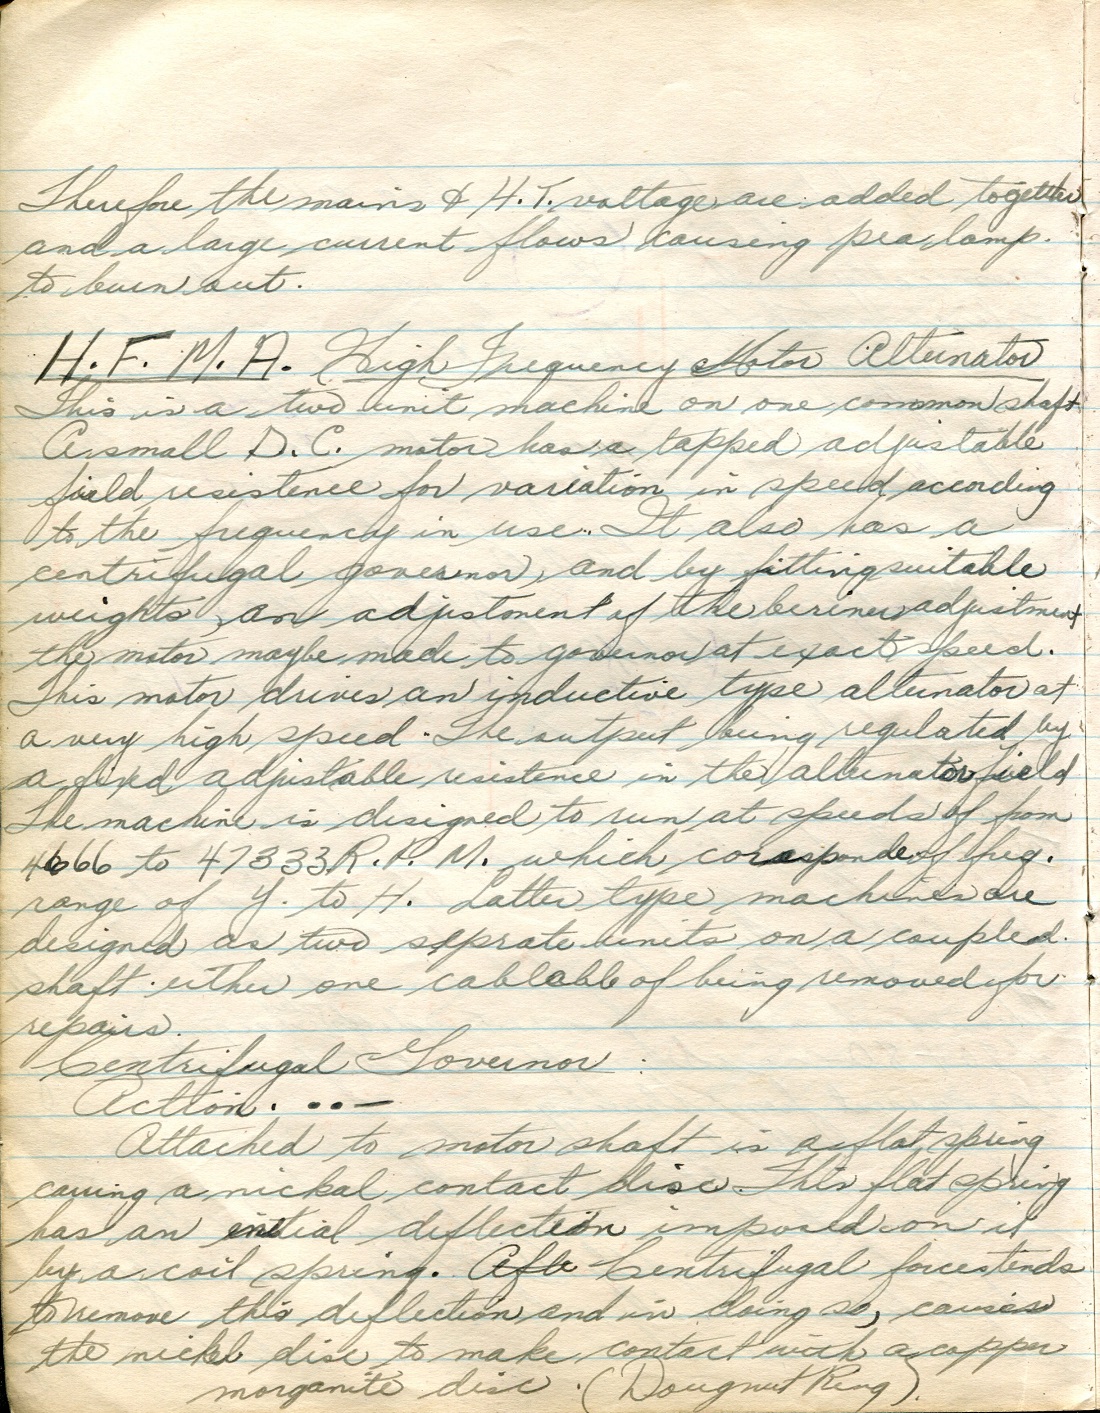 Therefore the mains & H.T. voltage are added together
and a large current flows causing pea lamp.
to burn out.
H. F. M. A. High Frequency Motor Alternator
This is a two unit machine on one common shaft.
A small D.C. motor has a tapped adjustable
field resistence for variation in speed according
to the frequency in use. It also has a
centrifugal governor, and by fitting suitable
weights, an adjustment of the adjustment
the motor maybe made to governor at exact speed.
This motor drives an inductive type alternator at
a very high speed. The output being regulated by
a fixed adjustable resistence in the alternator field
The machine is designed to run at speeds of from
4666 to 47333 R.P.M. which coresponde of freq.
range of Y. to H. Latter type machines are
designed as two seprate units on a coupled.
shaft either one cablable of being removed for
repairs.
Centrifugal Governor :
Action. ..—
Attached to motor shaft is a flat spring
carring a nickal contact disc. This flat spring
has an inetial deflection imposed on it
by a coil spring. Afte Centrifugal forces tends
to remove this deflection and in doing so, causes
the nickel disc to make contact with a copper
morganite disc. (Dougnut Ring).